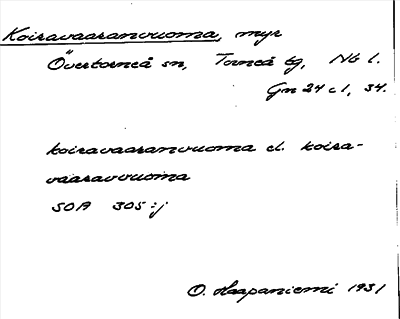 Koiravaaranvuoma, myr
Övertorneå sn, Torneå tg, Nb l.
Gn 24 c 1, 34.
koiravaaranvuoma el. koira-
vaaravvuoma
SOA 305:j
O. Haapaniemi 1931